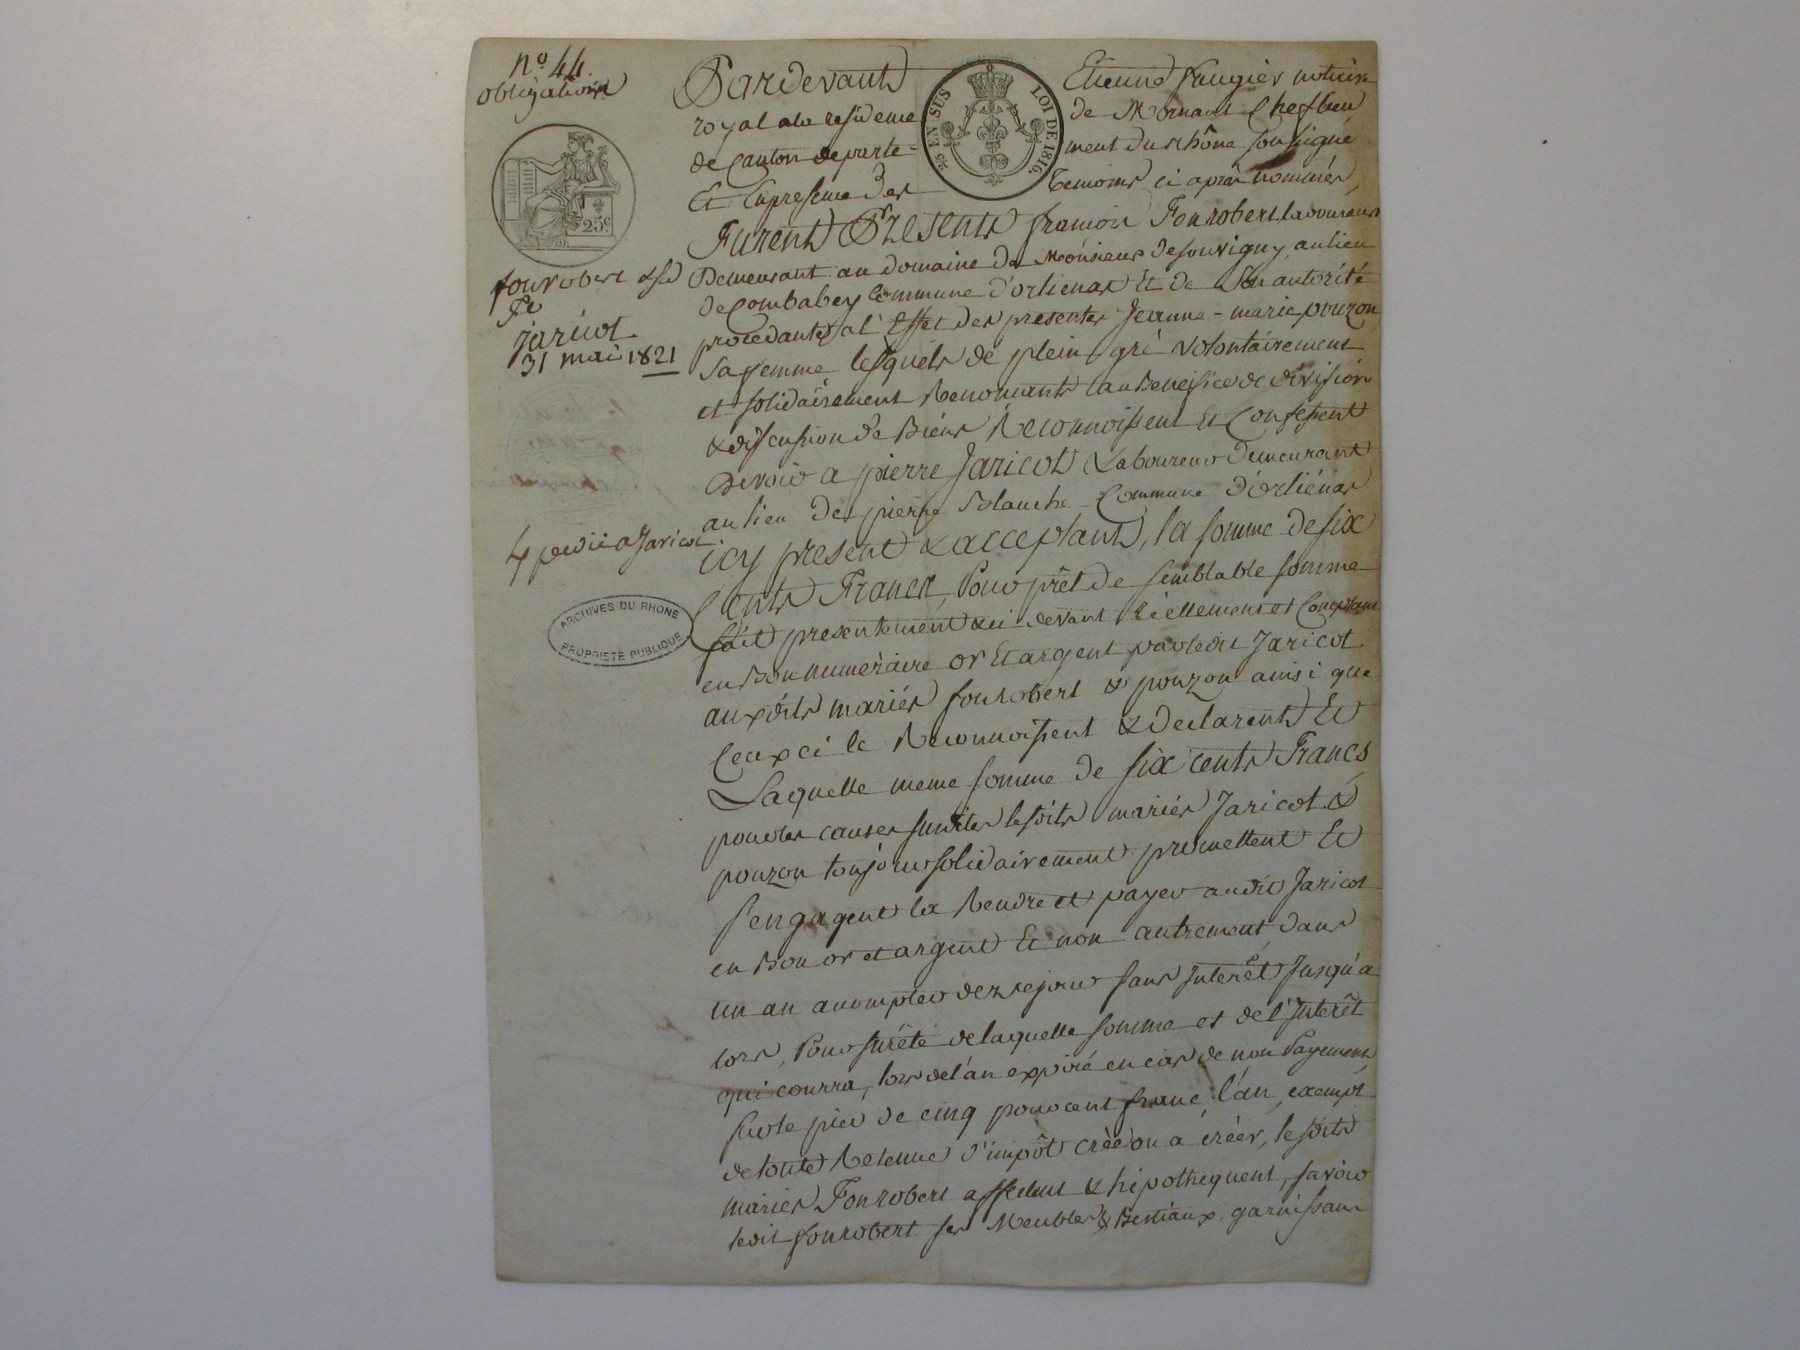 n.o 44.
obligation
25c
fourobert &sa
Fe
jaricot
31 mai 1821
4 expédié a Jaricot
ARCHIVES DU RHONE
PROPRIETE PUBLIQUE
25 EN SUS
LOI DE 1816
Pardevant Etienne Faugier notaire
royal ala residence de Mornant Cheflieu
de Canton departe= ment du rhône soussigné
Et Enpresence des temoins ci après nommés,
Furent Présents francois Fourobert laboureur
Demeurant au domaine de Monsieur desouvigny, aulieu
de Combabey Commune d'orlienas Et de Son autorité
procédante, al'Effet des presentes Jeanne-marie pouzon
Sa femme lesquels de plein gré volontairement
et solidairement Renoncants au Benefice de division
& discussion de Biens Reconnoissent Et Confessent
Devoir a pierre Jaricot Laboureur Demeurant
au lieu de pierre Blanche Commune d'orliénas
icy present & acceptant, la somme de six
Cents Francs, Pour prêt de semblable somme
fait presentement & ci devant Réellement et Comptant
en Bon numéraire or Et argent par ledit Jaricot
auxdits mariés fourobert & pouzon ainsi que
Ceux ci le Reconnoissent & declarent Et
Laquelle meme somme de six cents Francs
pour les causes susdites lesdits mariés Jaricot &
pouzon toujour solidairement promettent Et
s'engagent la Rendre et payer audit Jaricot
en Bon or et argent Et non autrement, dans
un an acompter de ce jour sans Interêt Jusqu'a
lors, Pour surêté de laquelle somme et de l'Interêt
qui courra, lors de l'an expiré en cas de non Payement,
sur le pied de cinq pour cent franc l'an, exempt
de toute Retenue d'impôt créé ou a créer, lesdits
mariés Fourobert affectent & hipothequent, savoir
ledit fourobert ses Meubles & Bestiaux garnissant